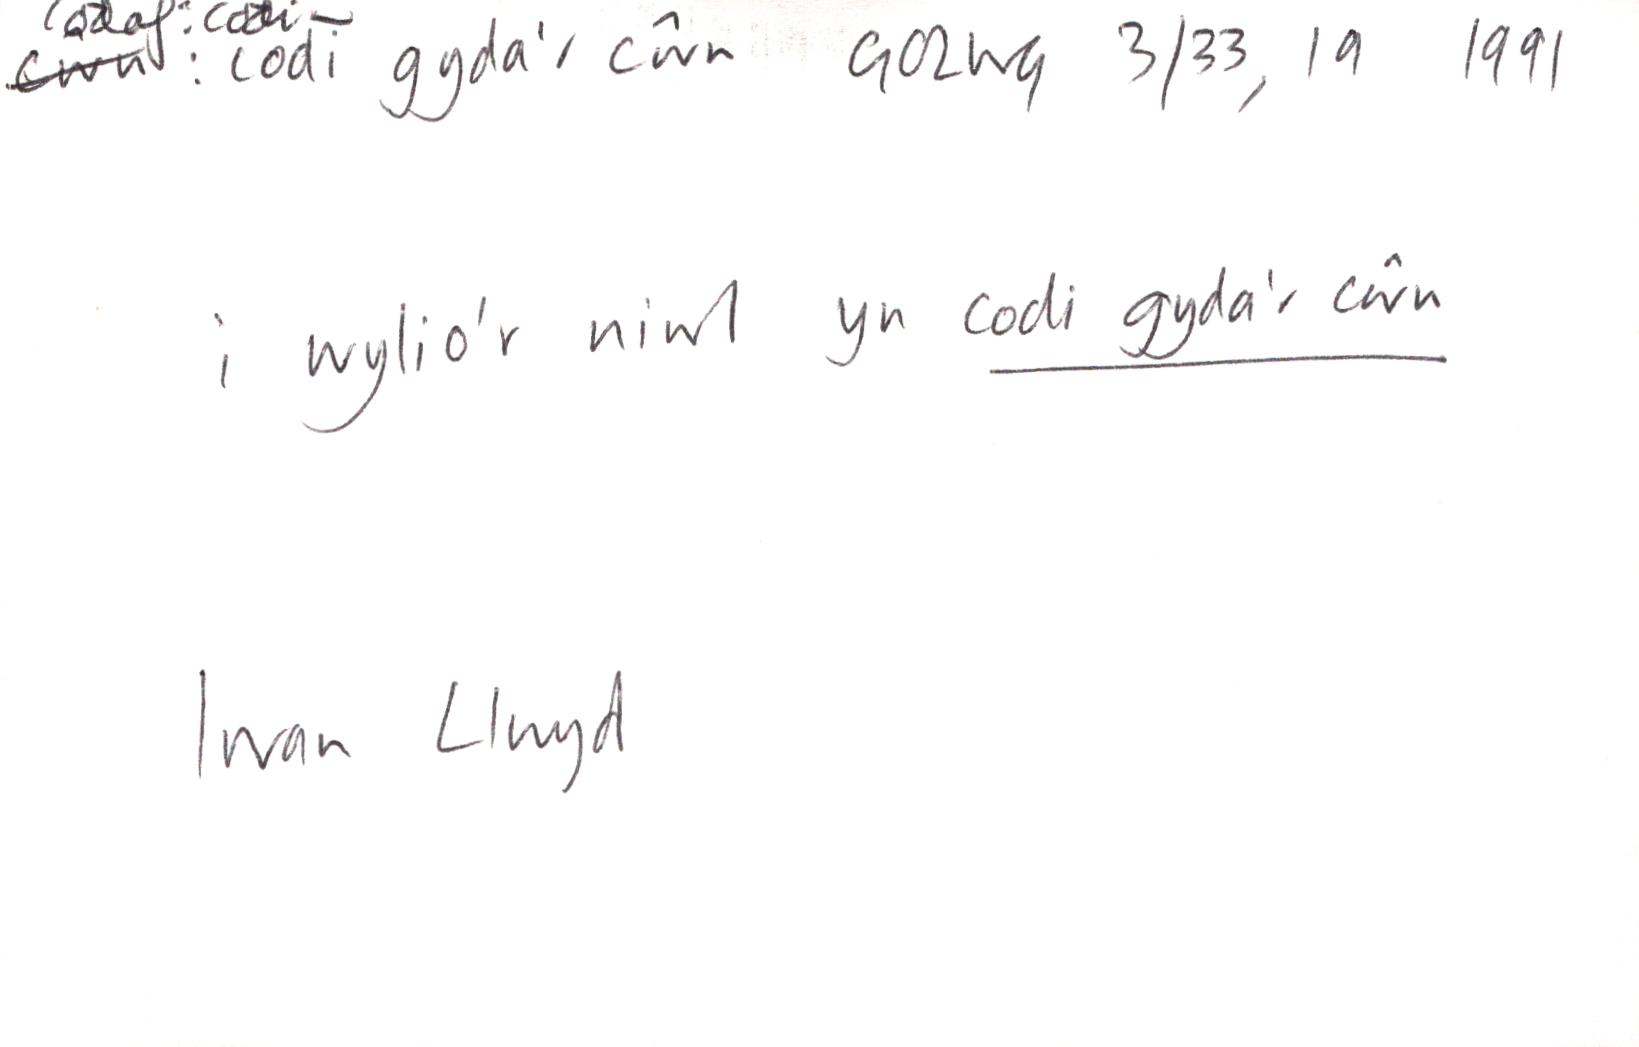 codaf: codi ~
cwn: codi gyda'r cŵn GOLWG 3/33, 19 1991
i wylio'r niwl yn codi gyda'r cŵn
Iwan Llwyd